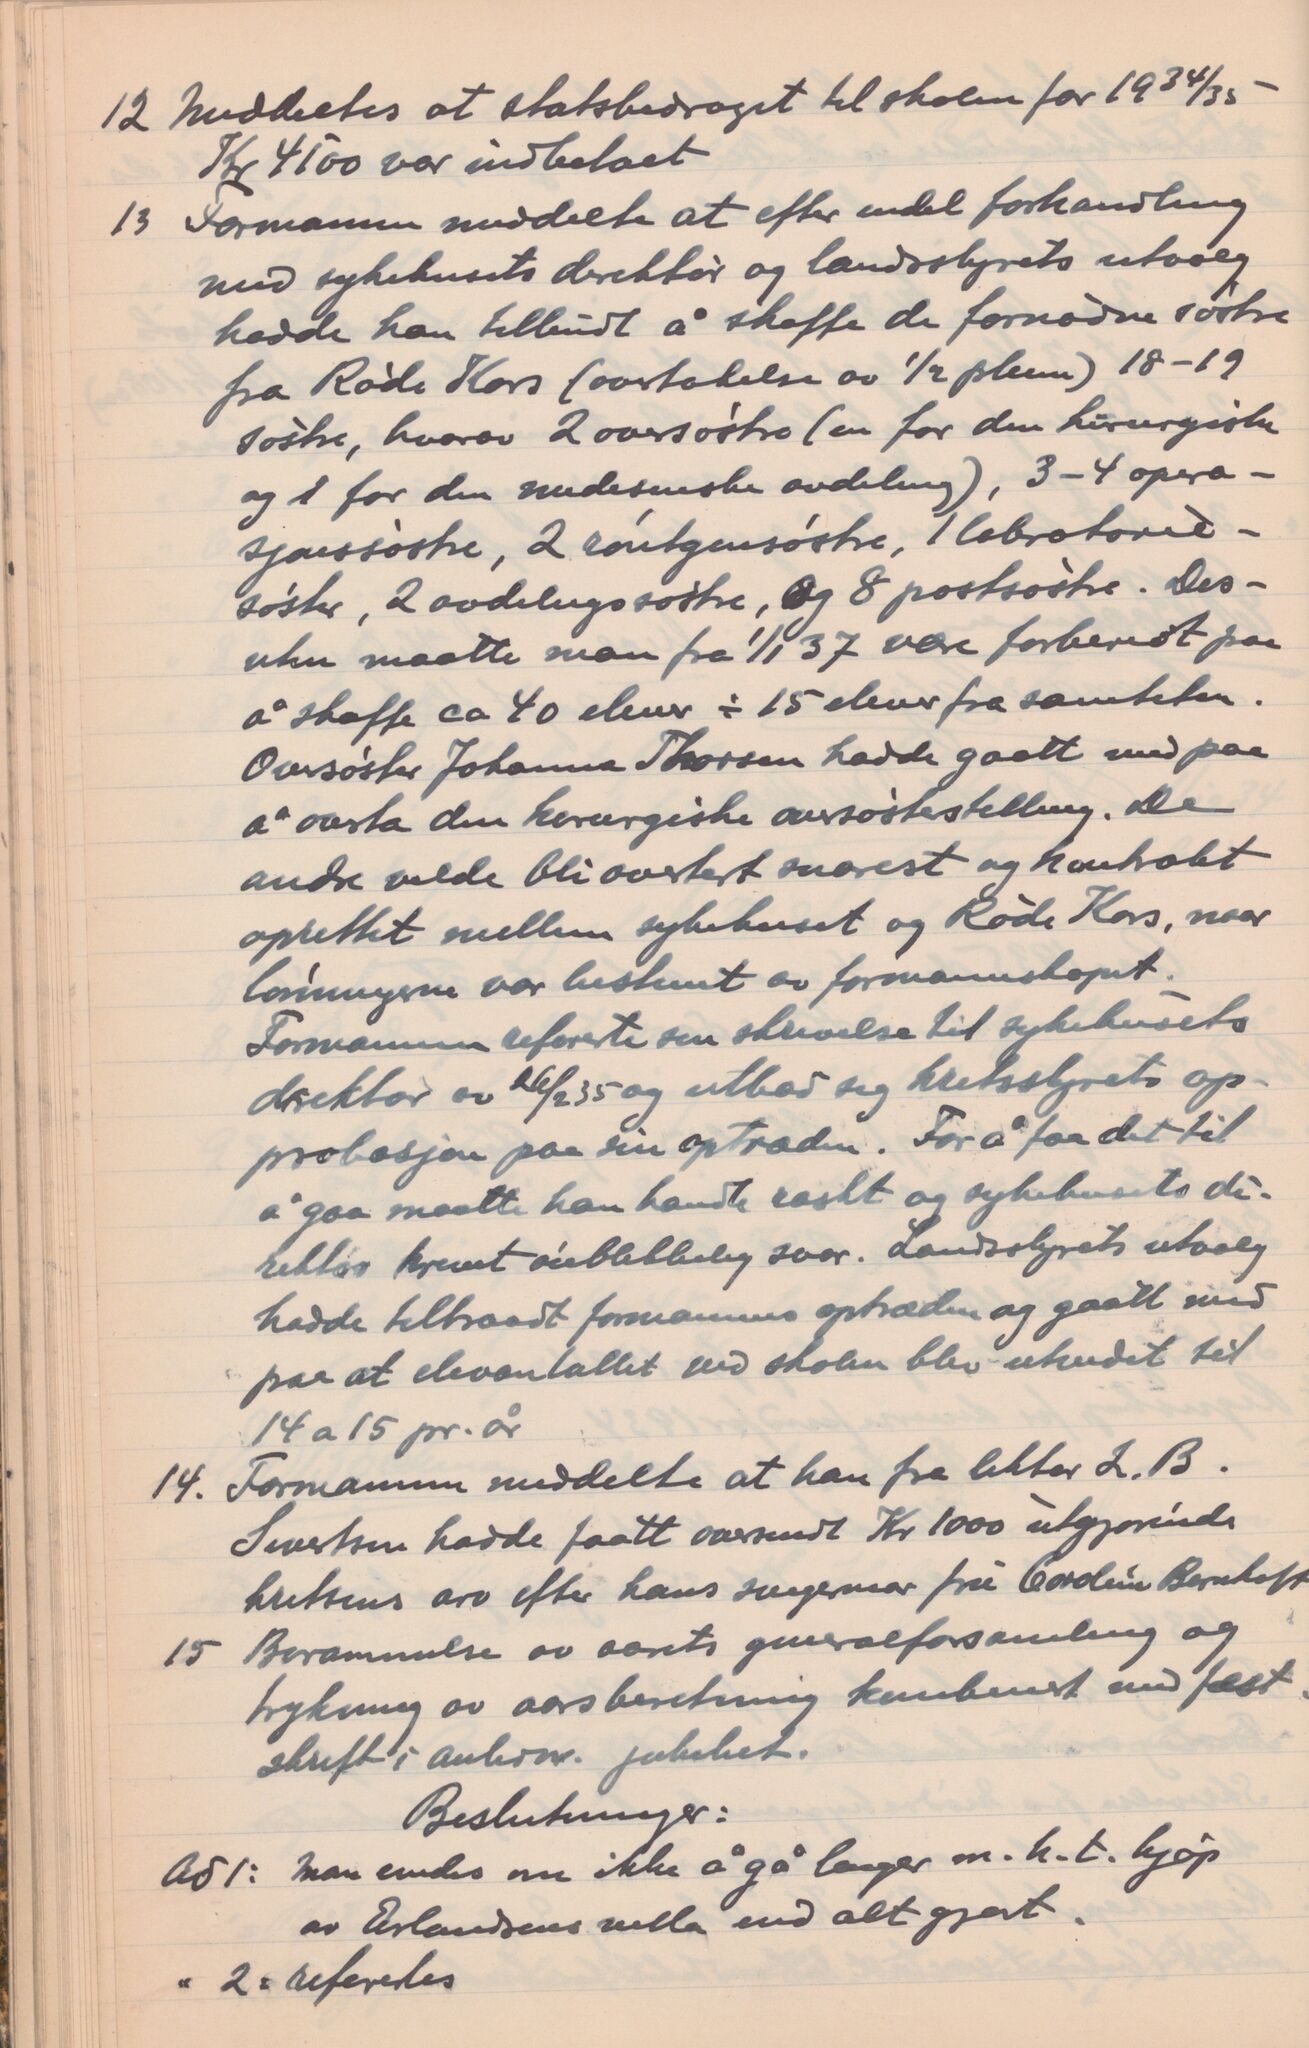 12 Meddeltes at statsbidraget til skolen for 1934/35
Kr 4100 var indbetalt
13 Formannen meddelte at efter endel forhandling
med sykehusets direktør og landsstyrets utvalg
hadde han tilbudt å skaffe de fornødne søstre
fra Røde Kors (overtakelse av 1/2 pleien) 18-19
søstre, hvorav 2 oversøstre (en for den kirurgiske
og 1 for den medisinske avdeling), 3-4 opera-
sjonssøstre, 2 røntgensøstre, 1 labratorie-
søster, 2 avdelingssøstre, og 8 postsøstre. Des-
uten maatte man fra 1/1 37 være forberedt paa
å skaffe ca 40 elever ÷ 15 elever fra samtiden.
Oversøster Johanna Thorsen hadde gaatt med paa
å overta den kirurgiske oversøsterstilling. De
andre vilde bli avertert snarest og kontrakt
oprettet mellem sykehuset og Røde Kors, naar
lønningene var bestemt av formannskapet.
Formannen refererte sin skrivelse til sykehusets
direktør av 26/2 35 og utbad seg kretsstyrets ap-
probasjon paa sin optræden. For å faa det til
å gaa maatte han handle raskt og sykehusets di-
rektør krevet øieblikkelig svar. Landsstyrets utvalg
hadde tiltraadt formannens optræden og gaatt med
paa at elevantallet ved skolen blev utvidet til
14 a 15 pr. år
14. Formannen meddelte at han fra lektor L. B.
Sivertsen hadde faatt oversendt Kr 1000 utgjørende
kretsens arv efter hans svigermor frü Cordein Bernhoft
15 Berammelse av aarets generalforsamling og
trykning av aarsberetning kombinert med fest-
skrift i anledn. jubileet.
Beslutninger:
Ad 1: Man enedes om ikke å gå lenger m.h.t. kjøp
av Erlandsens villa end alt gjort.
" 2: refererles